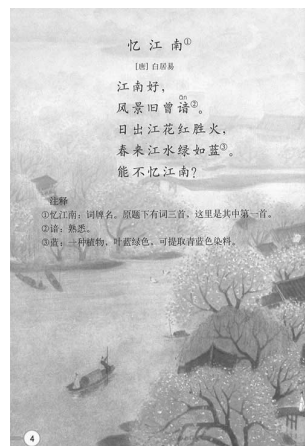 忆江南①
[唐]白居易
江南好，
ān
风景旧曾谙②。
日出江花红胜火，
春来江水绿如蓝③。
能不忆江南？
注释
①忆江南：词牌名。原题下有词三首，这里是其中第一首。
②谙：熟悉。
③蓝：一种植物，叶蓝绿色，可提取青蓝色染料。
4